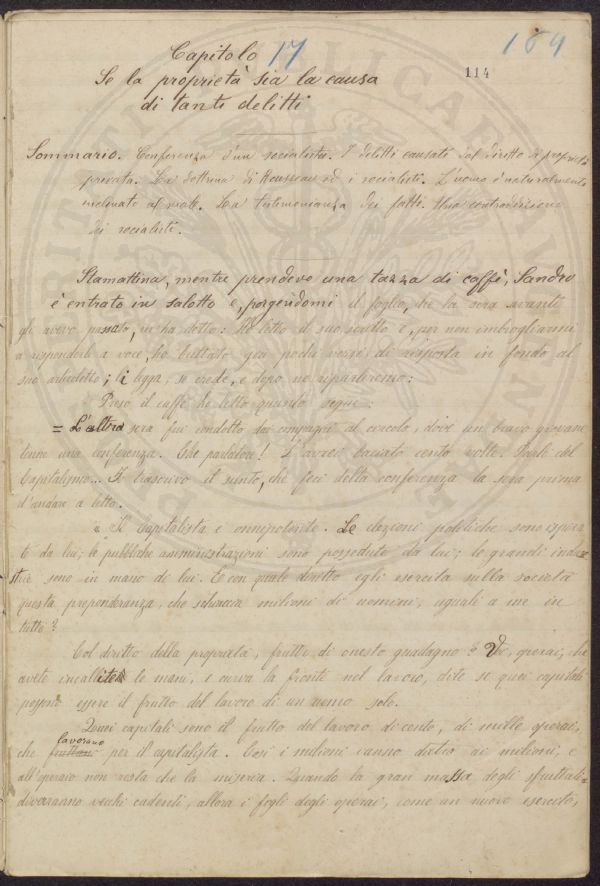 164
Capitolo 17
114
Se la proprietà sia la causa
di tanti delitti
Sommario. Conferenza d'un socialista. I delitti causati dal diritto di proprietà
privata. La dottrina di Rousseau ed i socialisti. L'uomo è naturalmente
inclinato al male. La testimonianza dei fatti. Una contradizione
dei socialisti.
Stamattina, mentre prendevo una tazza di caffè, Sandro
è entrato in salotto e, porgendomi il foglio, che la sera avanti
gli avevo passato, m'ha detto: Ho letto il suo scritto e, per non imbrogliarmi
a rispondere a voce, ho buttato giù pochi versi di risposta in fondo al
suo ; li legga, se crede, e dopo ne riparleremo:
Preso il caffè ho letto quanto segue:
= L'altra sera fui condotto dai compagni al circolo, dove un bravo giovane
tenne una conferenza. Che parlatore! L'avrei baciato cento volte. Parlò del
Capitalismo... Io trascrivo il sunto, che feci della conferenza la sera prima
d'andare a letto.
" Il Capitalista è onnipotente. Le elezioni politiche sono
da lui; le pubbliche amministrazioni sono possedute da lui; le grandi indu=
strie sono in mano di lui. E con quale diritto egli esercita sulla società
questa preponderanza, che schiaccia milioni di uomini, uguali a me in
tutto?
Col diritto della proprietà, frutto di onesto guadagno? Voi, operai, che
avete incallite le mani, e curva la fronte nel lavoro, dite se quei capitali
possono essere il frutto del lavoro di un uomo solo.
Quei capitali sono il frutto del lavoro di cento, di mille operai,
lavorano
che fruttano per il capitalista. Così i milioni vanno dietro ai milioni, e
all'operaio non resta che la miseria. Quando la gran massa degli sfruttati
diverranno vecchi cadenti, allora i figli degli operai, come un nuovo esercito,